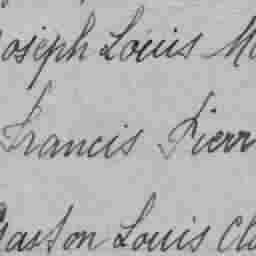 Joseph Louis M
Francis Pierr
Gaston Louis Cl